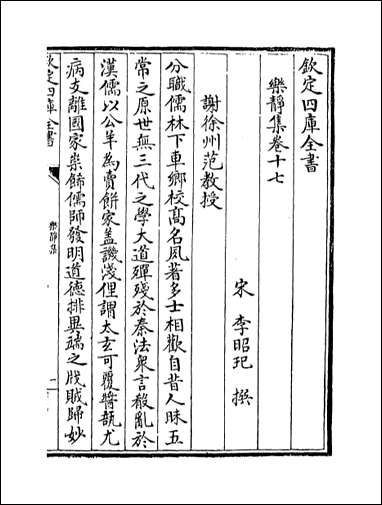 欽定四庫全書
樂靜集卷十七
宋 李昭玘 撰
謝徐州范教授
分職儒林下車鄉校高名夙著多士相歡自昔人昧五
常之原世無三代之學大道殫殘於秦法衆言殽亂於
漢儒以公羊為賣餅家盖譏淺俚謂太玄可覆醬瓿尤
病支離國家崇飾儒師發明道德排異端之戕賊歸妙
欽定四庫全書
樂靜集
一